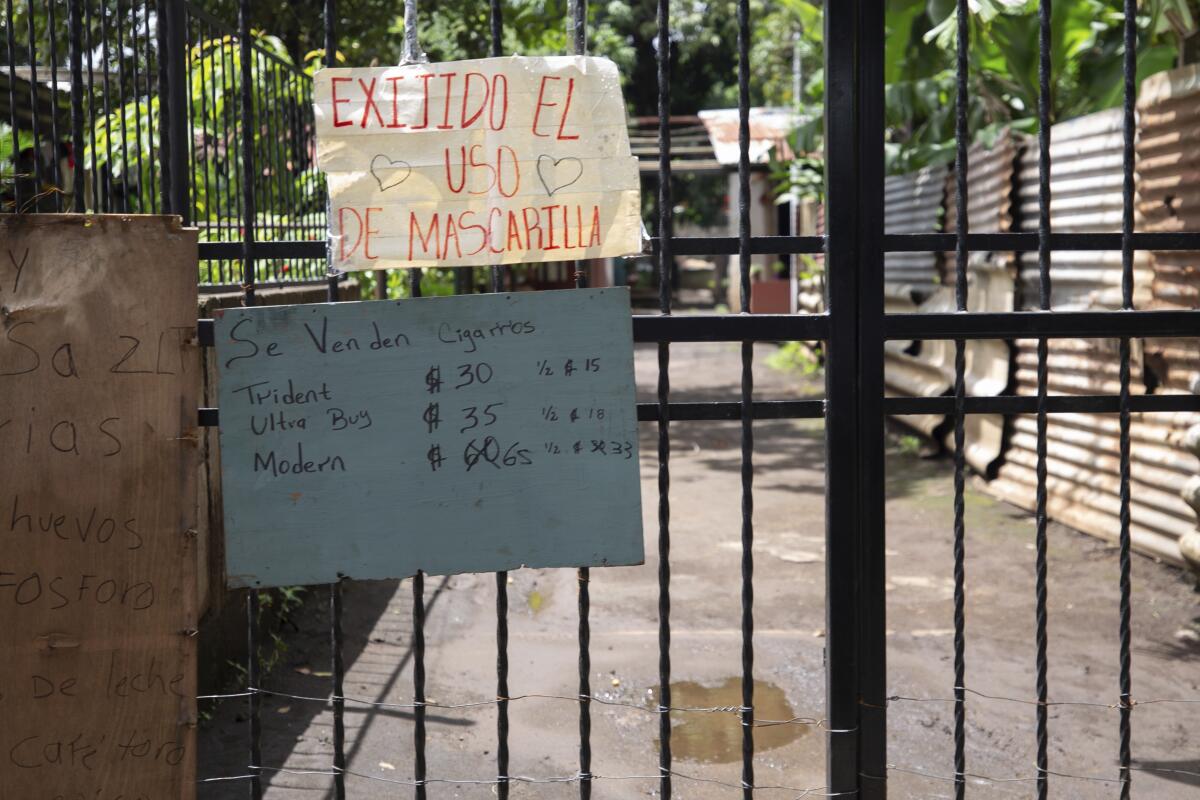 EXIJIDO EL
USO
DE MASCARILLA
Se Venden Cigarrios
Trident $ 30 1/2 $ 15
Ultra Buy $ 35 1/2 $ 18
Modern $ 65 1/2 $ 33
y
Sa
rias
huevos
FOSFORO
De leche
Café toro